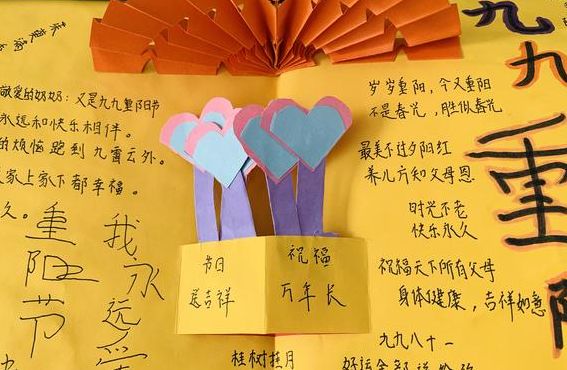 敬爱的奶奶:又是九九重阳节
永远和快乐相伴。
的烦恼跑到九霄云外。
家上家下都幸福。
久。
重阳节
我永远爱
节日
送吉祥
祝福
万年长
桂树挂月
岁岁重阳,今又重阳
不是春光,胜似春光
最美不过夕阳红
养儿方知父母恩
时光不老
快乐永久
祝福天下所有父母
身体健康,吉祥如意
九九八十一
好运全部送给
九九重